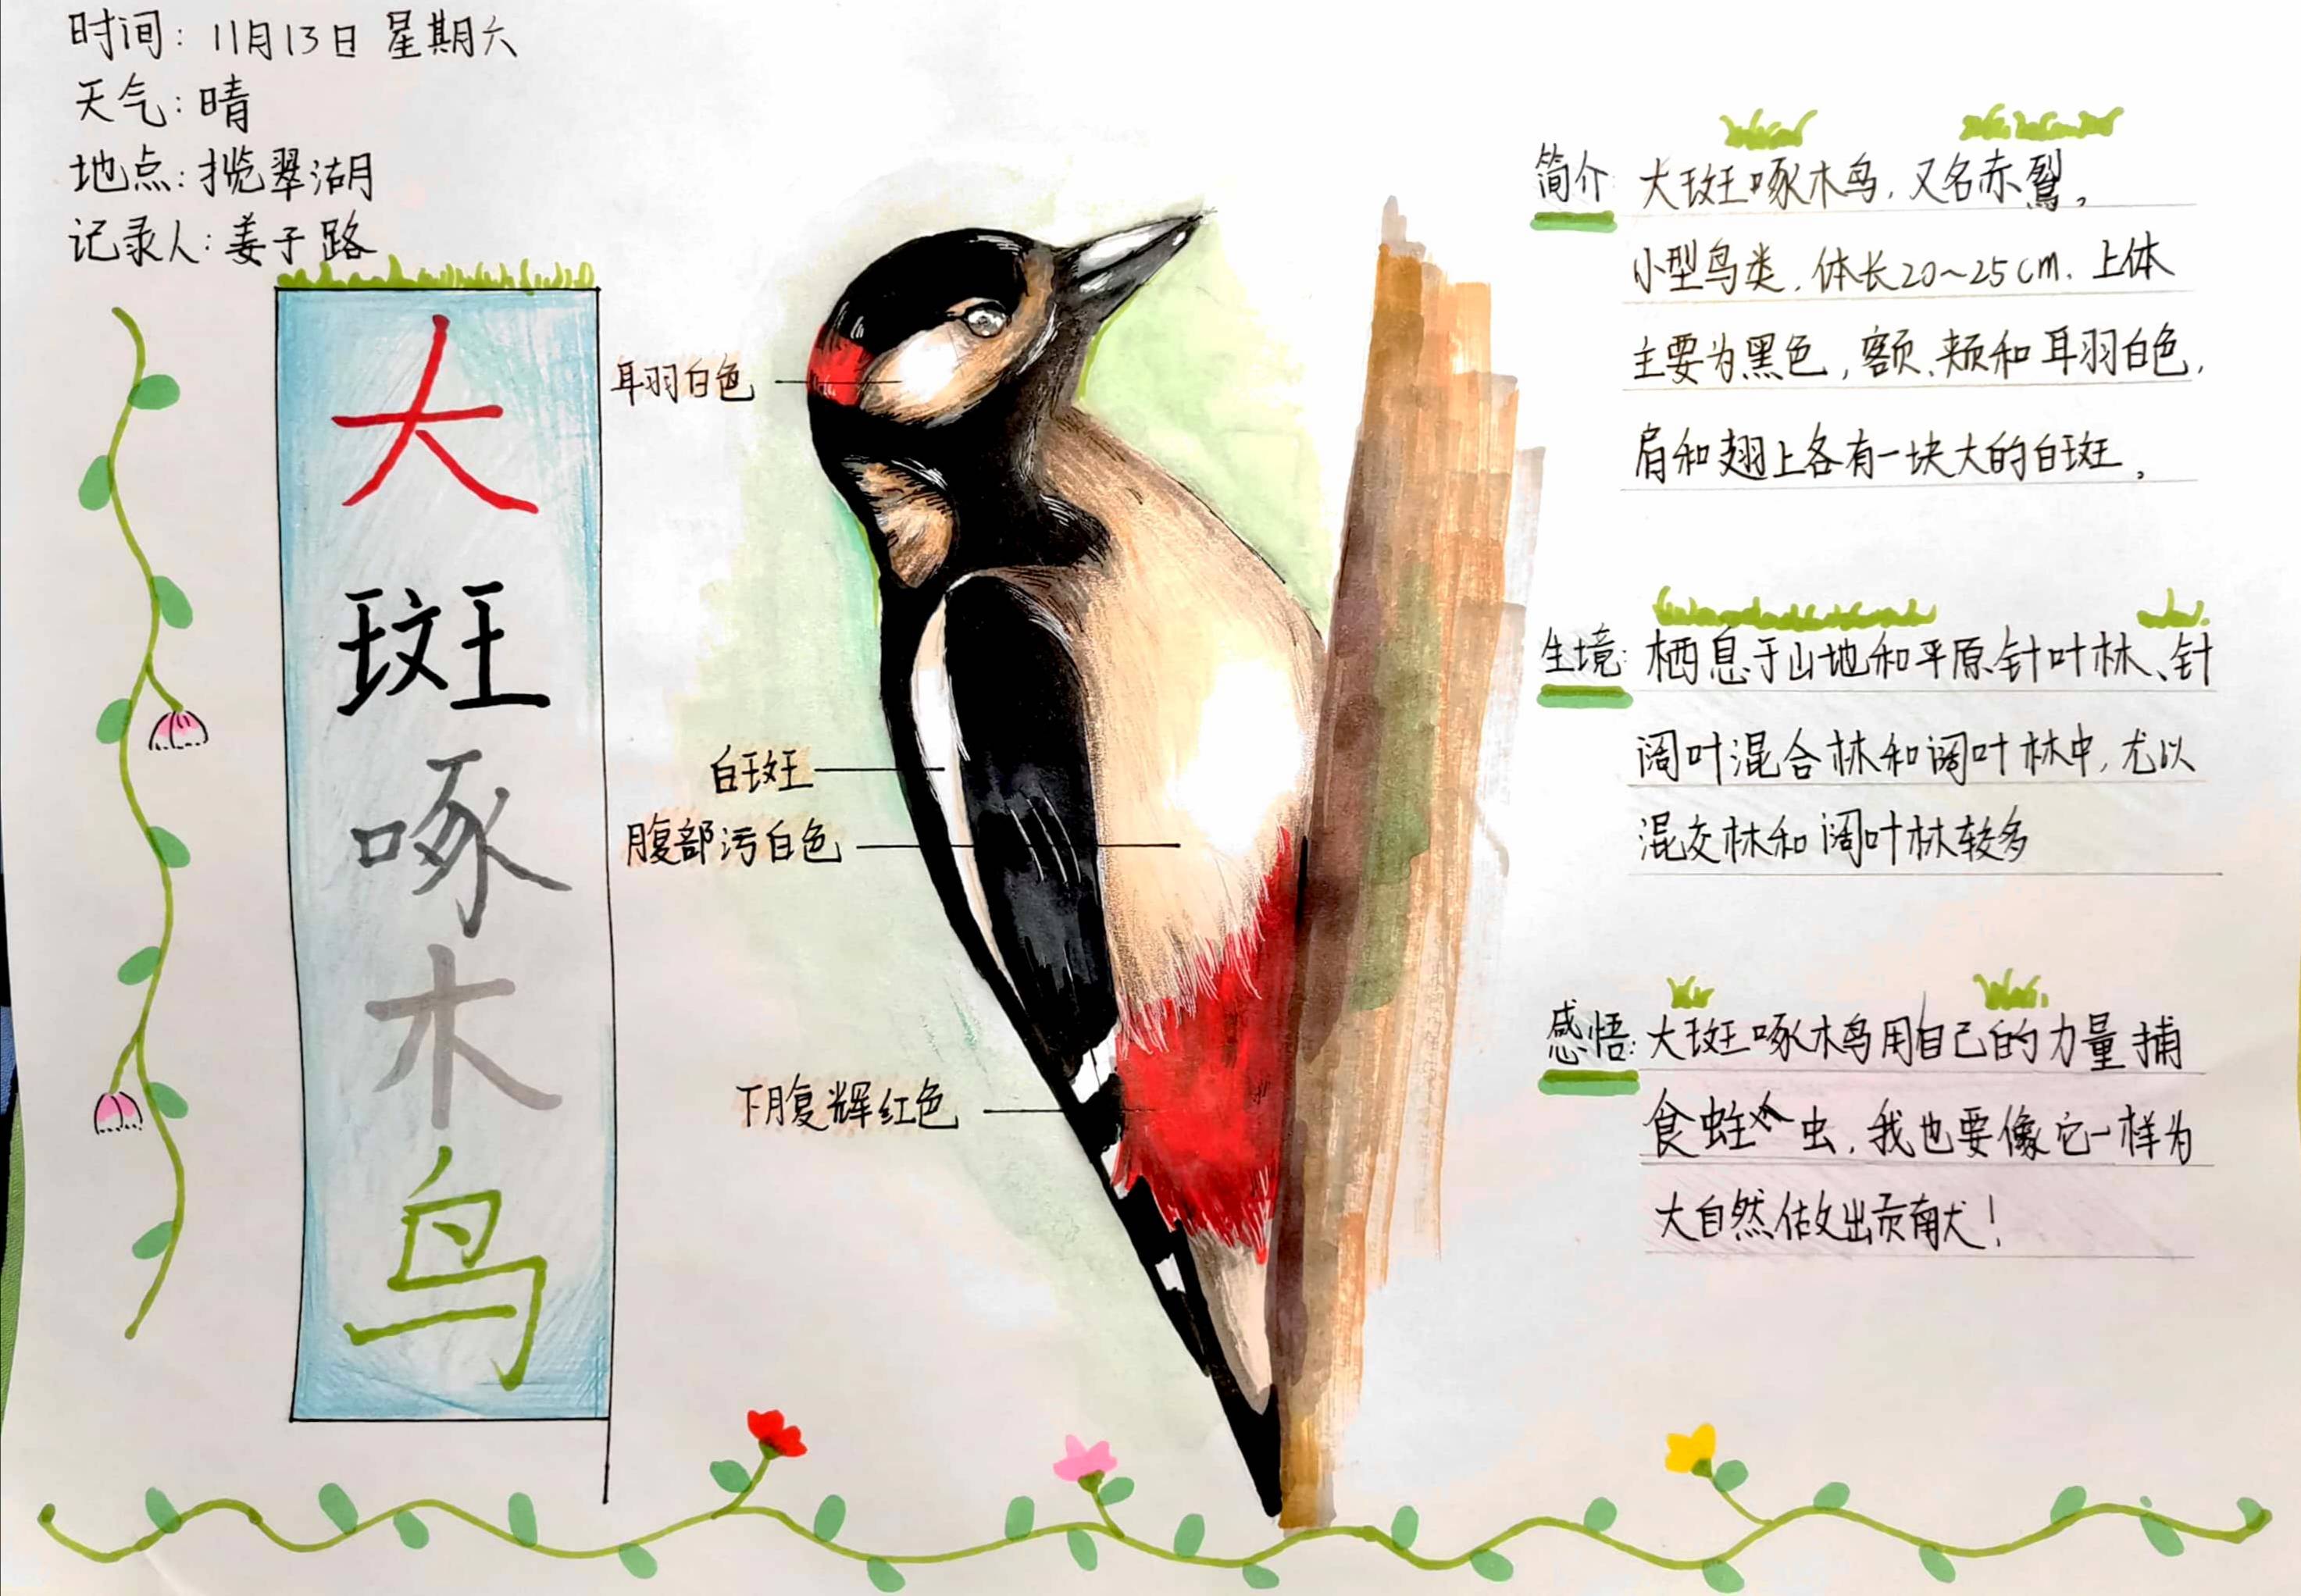 时间：11月13日 星期六
天气：晴
地点：揽翠湖
记录人：姜子路
大斑啄木鸟
耳羽白色
白斑
腹部污白色
下腹辉红色
简介 大斑啄木鸟，又名赤鴷。
小型鸟类，体长20~25cm. 上体
主要为黑色，额、颊和耳羽白色，
肩和翅上各有一块大的白斑。
生境：栖息于山地和平原针叶林、针
阔叶混合林和阔叶林中，尤以
混交林和阔叶林较多
感悟：大斑啄木鸟用自己的力量捕
食蛀虫，我也要像它一样为
大自然做出贡献！